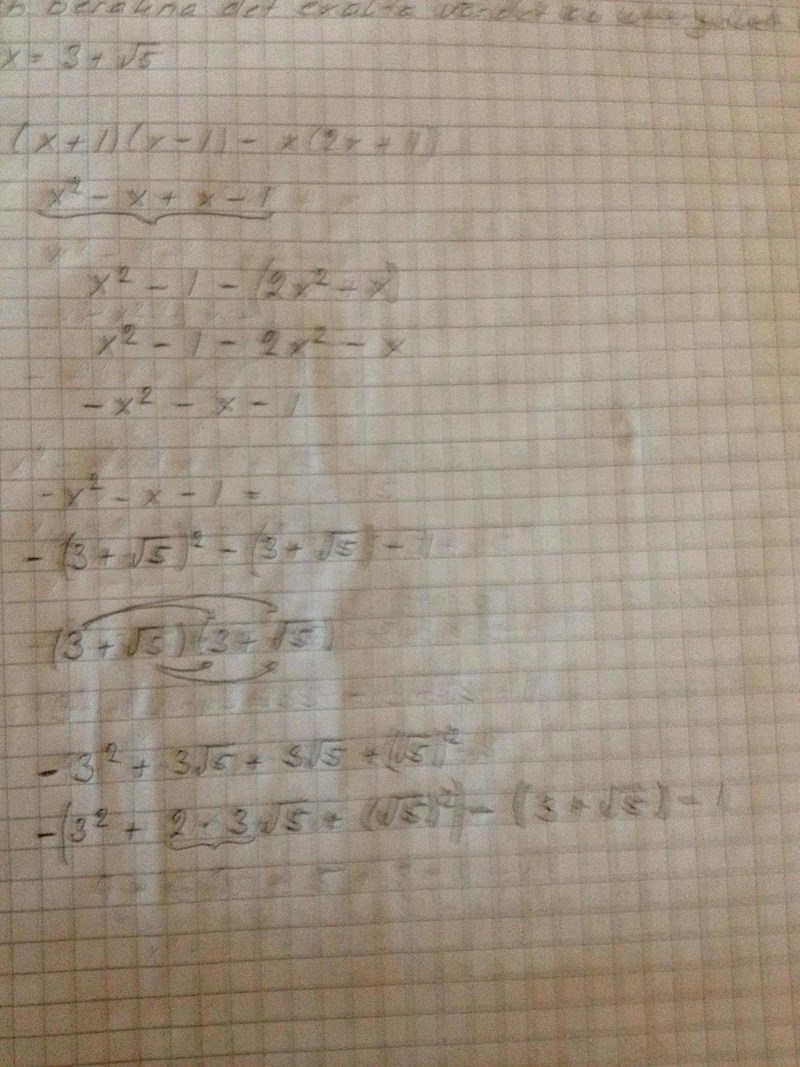 b beräkna det exakta värdet av
x = 3 + √5
(x + 1)(x - 1) - x(2x + 1)
x² - x + x - 1
x² - 1 - (2x² + x)
x² - 1 - 2x² - x
- x² - x - 1
- x² - x - 1 =
- (3 + √5)² - (3 + √5) - 1
(3 + √5)(3 + √5)
- 3² + 3√5 + 3√5 + (√5)²
- (3² + 2 · 3√5 + (√5)²) - (3 + √5) - 1